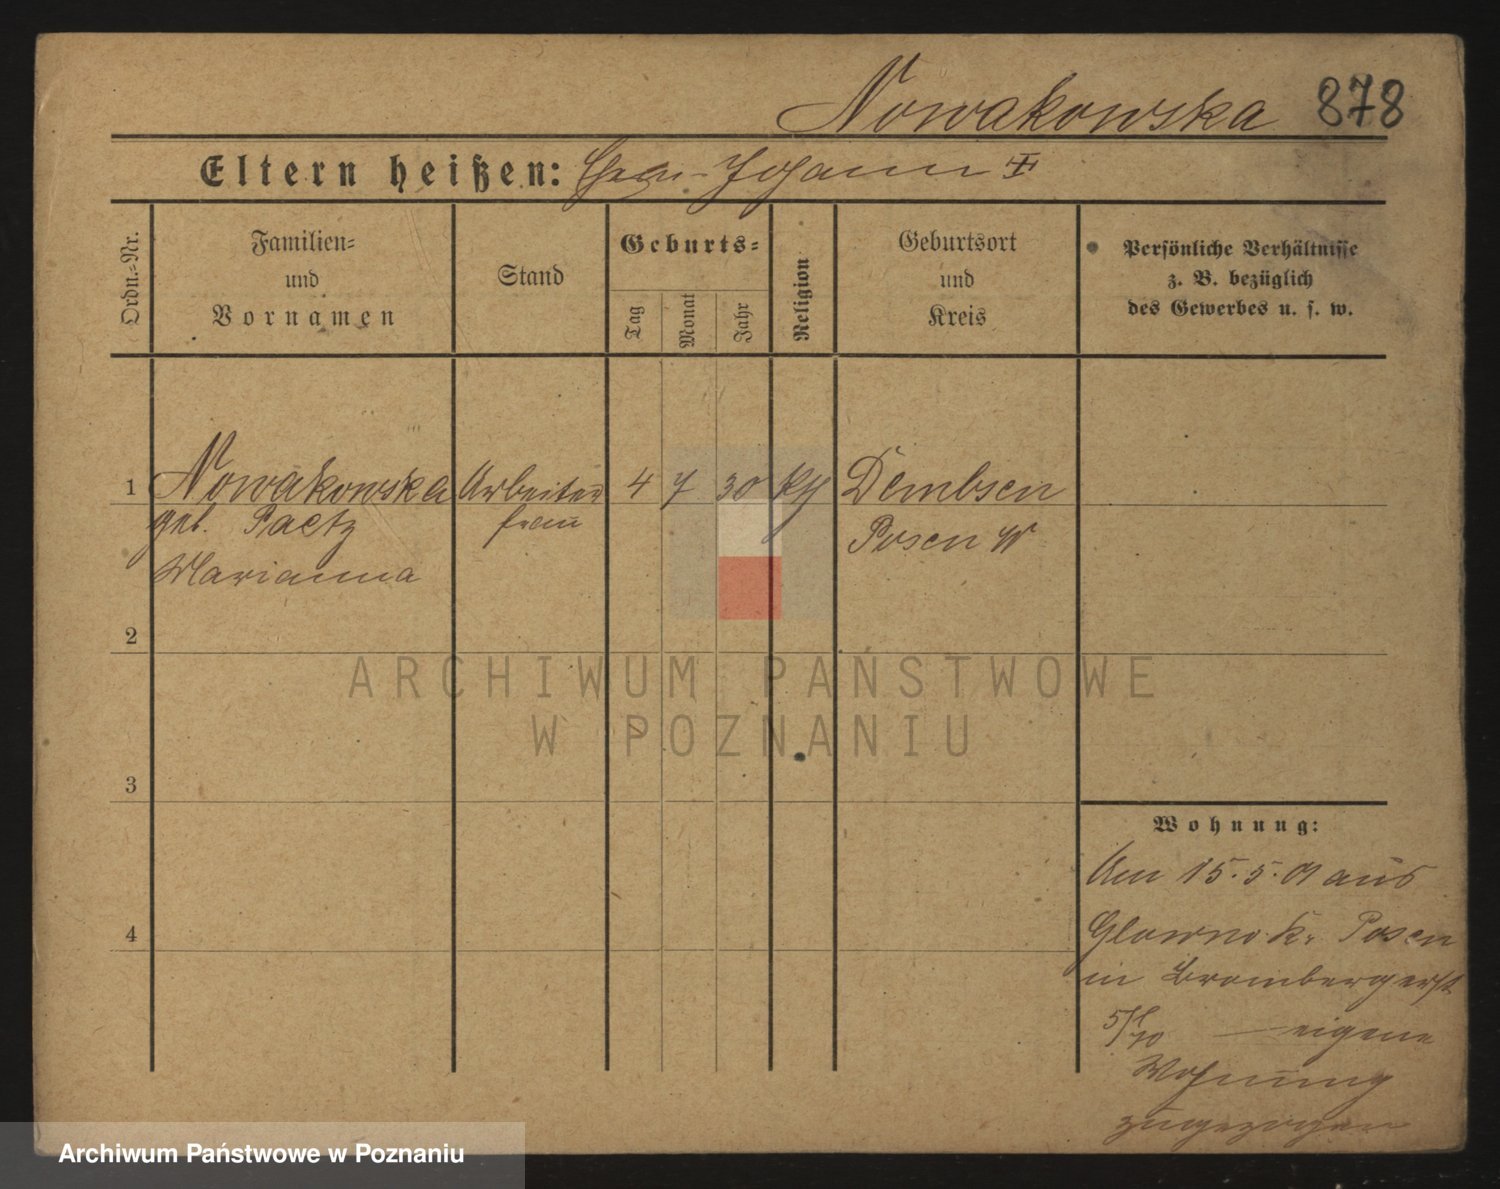 Nowakowska 878
Eltern heißen: Johann
Ordn.-Nr.
Familien-
und
Vornamen
Stand
Geburts-
Tag
Monat
Jahr
Religion
Geburtsort
und
Kreis
Persönliche Verhältnisse
z. B. bezüglich
des Gewerbes u. s. w.
1 Nowakowska Arbeiter 4 7 30 Dembsen
geb. Paetz frau Posen W
Marianna
2
3
4
Wohnung:
Am 15.5.01 aus
Glowno K. Posen
in Brombergerst
eigene
Wohnung
zugezogen
ARCHIWUM PAŃSTWOWE
W POZNANIU
Archiwum Państwowe w Poznaniu